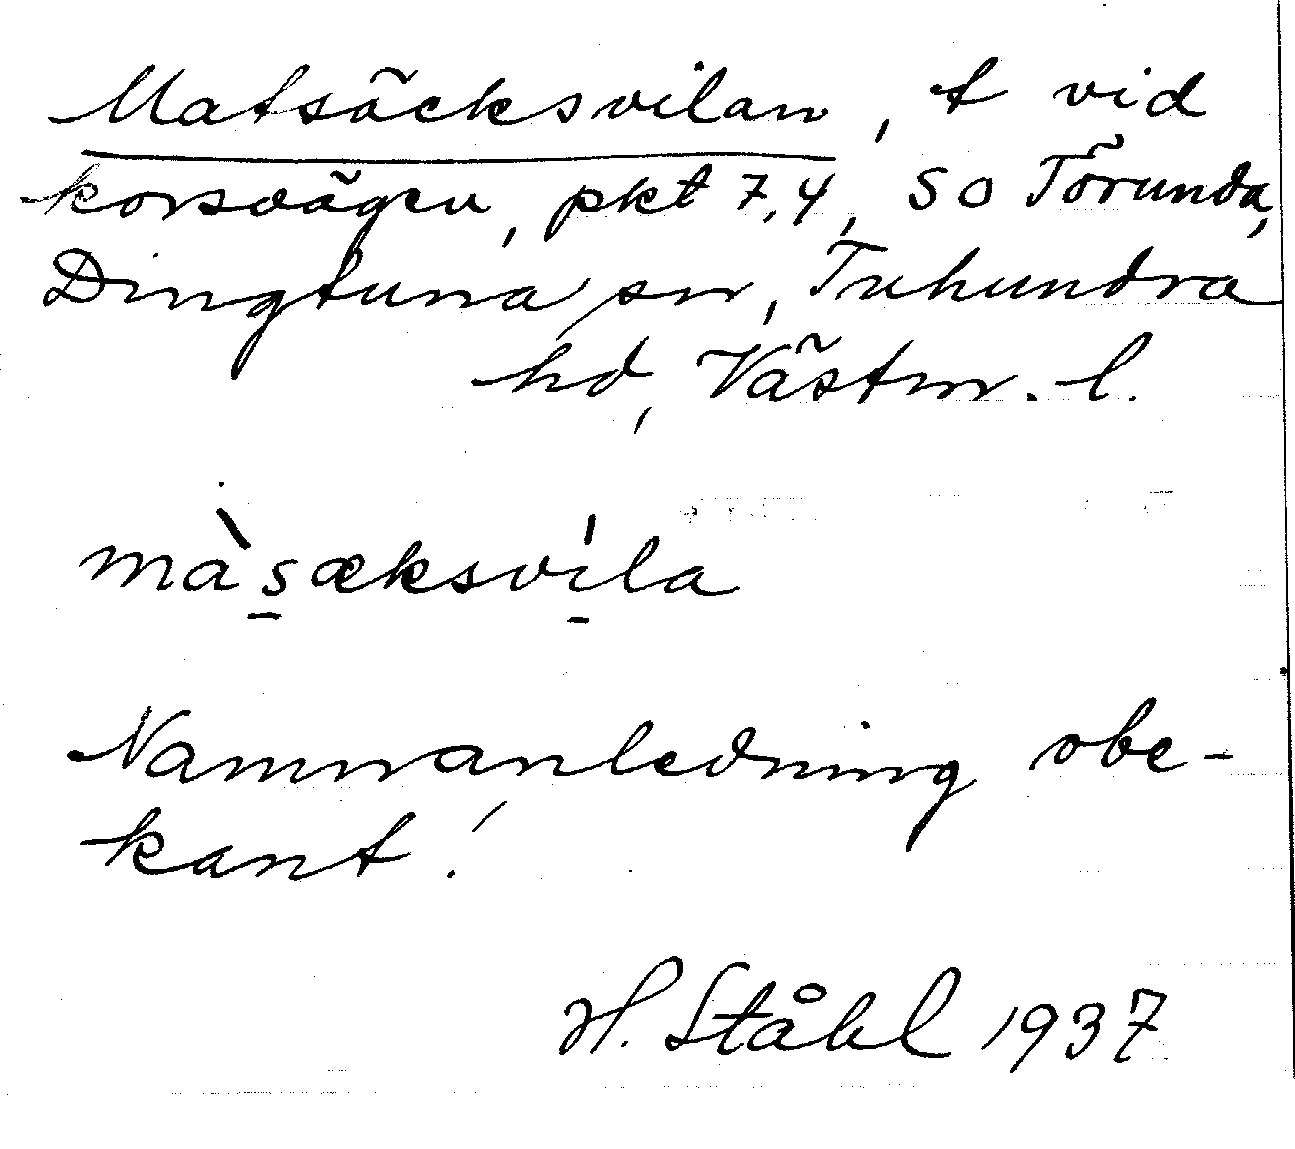 Matsäcksvilan, t vid
korsvägen, pkt 7,4, SO Törunda,
Dingtuna sn, Tuhundra
hd, Västm. l.
màsæksvíla
Namnanledning obe-
kant!
H. Ståhl 1937